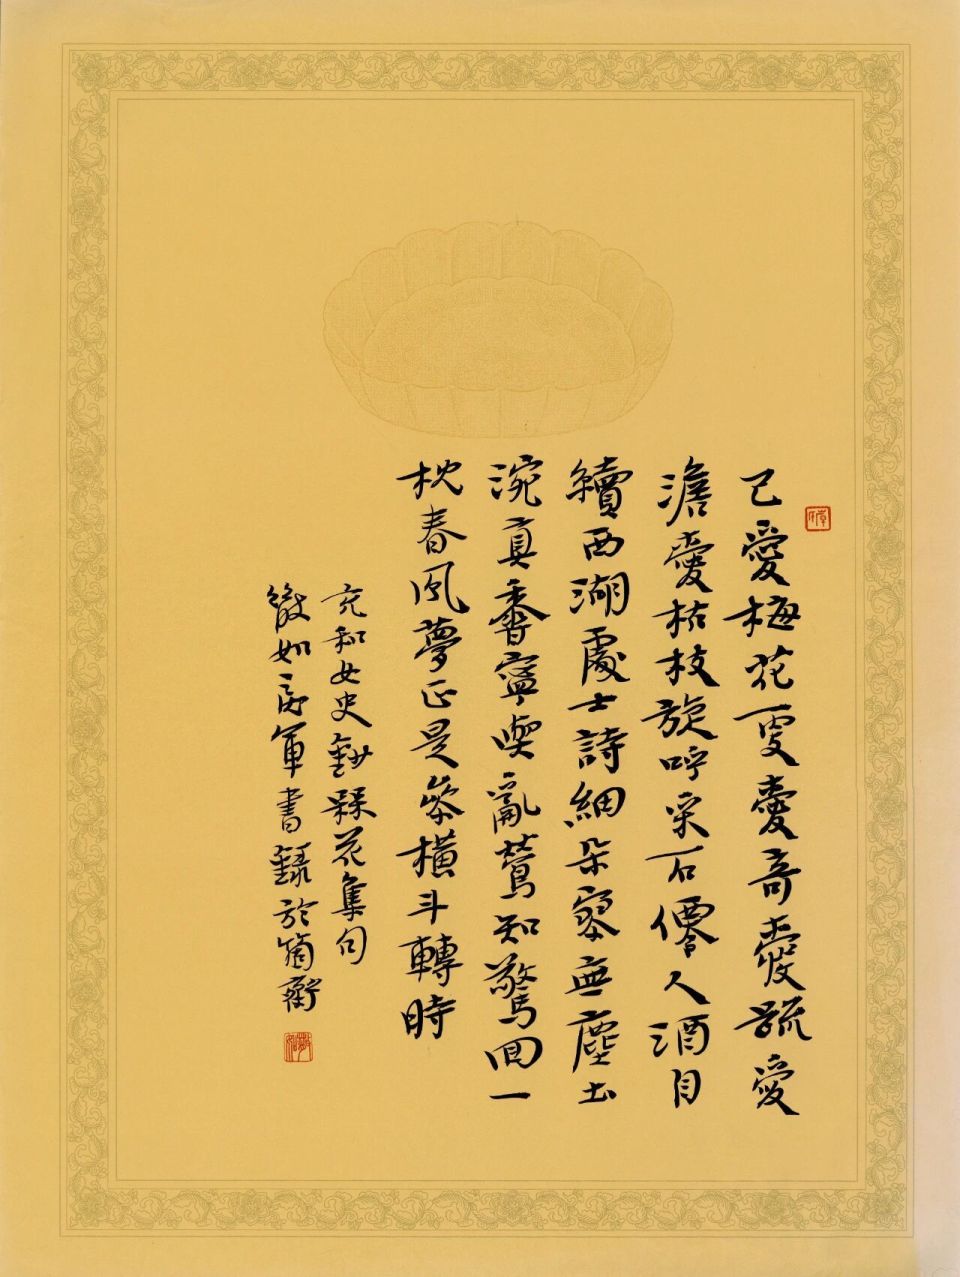 已愛梅花更愛奇愛疏愛
澹愛枯枝旋呼采石僊人酒自
續西湖處士詩細朵寥無塵土
涴真香寧喫亂鶯知驚回一
枕春風夢正是參橫斗轉時
充和女史鈔槑花集句
如軍書錄於